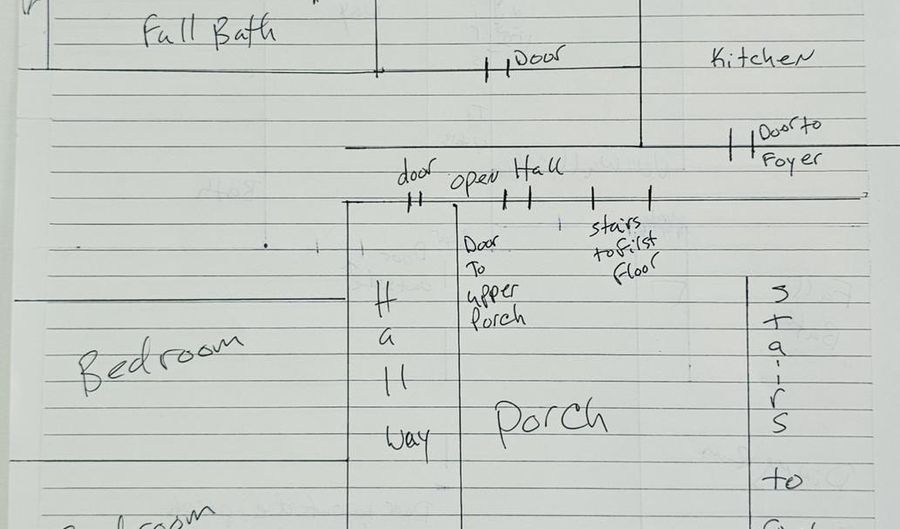 Full Bath
Door
Kitchen
Door to
Foyer
door
open Hall
Door
To
upper
Porch
stairs
to First
Floor
Hallway
Bedroom
Porch
Stairs
to
Bedroom